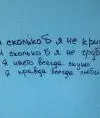 И сколькоб я не кри
И сколькоб я не груб
Я 	всегда скучаю
Я правда всегда любл